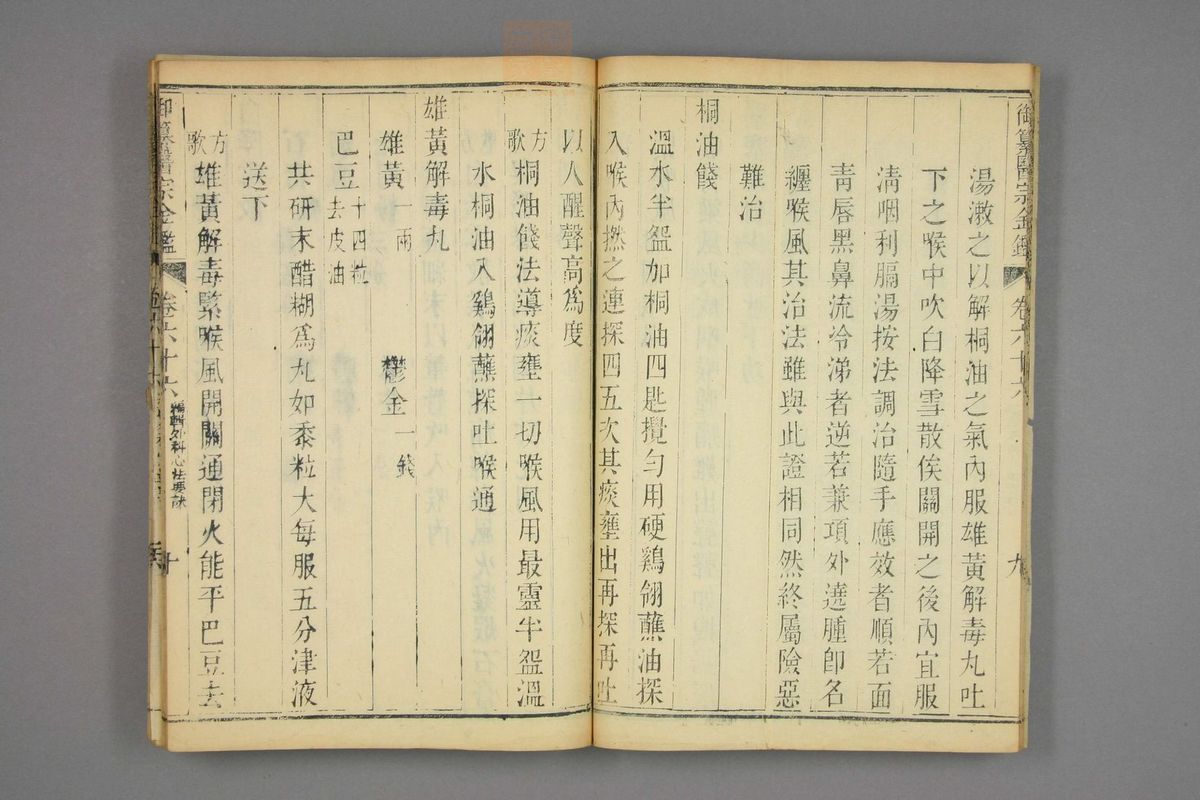 御纂醫宗金鑑 卷六十六 九
湯漱之以解桐油之氣內服雄黃解毒丸吐
下之喉中吹白降雪散俟關開之後內宜服
清咽利膈湯按法調治隨手應效者順若面
青唇黑鼻流冷涕者逆若兼項外遶腫卽名
纏喉風其治法雖與此證相同然終屬險惡
難治
桐油餞
溫水半盌加桐油四匙攪勻用硬鷄翎蘸油探
入喉內撚之連探四五次其痰壅出再探再吐
以人醒聲高爲度
方歌 桐油餞法導痰壅一切喉風用最靈半盌溫
水桐油入鷄翎蘸探吐喉通
雄黃解毒丸
雄黃一兩 鬱金一錢
巴豆十四粒去皮油
共研末醋糊爲丸如黍粒大每服五分津液
送下
方歌 雄黃解毒緊喉風開關通閉火能平巴豆去
御纂醫宗金鑑 卷六十六 編輯外科心法要訣 十